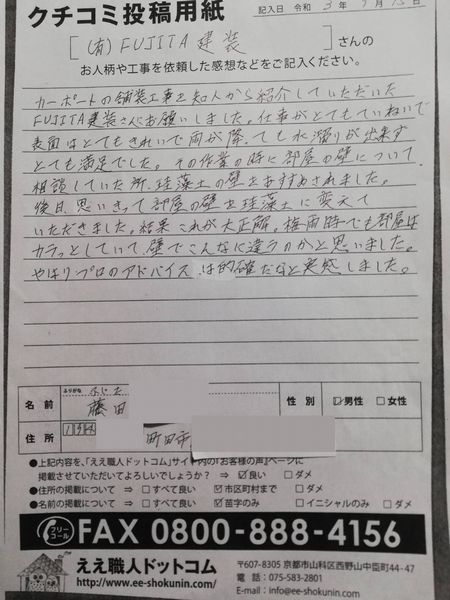 クチコミ投稿用紙
記入日 令和 3年 9月 13日
[ (有) FUJITA 建装 ] さんの
お人柄や工事を依頼した感想などをご記入ください。
カーポートの舗装工事を知人から紹介していただいた
FUJITA建装さんにお願いしました。仕事がとてもていねいで
表面はとてもきれいで雨が降っても水溜りが出来ず
とても満足でした。その作業の時に部屋の壁について
相談していた所、珪藻土の壁をおすすめされました。
後日、思いきって部屋の壁を珪藻土に変えて
いただきました。結果これが大正解。梅雨時でも部屋は
カラッとしていて、壁でこんなに違うのかと思いました。
やはりプロのアドバイスは的確だなと実感しました。
ふりがな ふじた
名前 藤田
性別 ☑男性 □女性
住所 194 町田市
●上記内容を、「ええ職人ドットコム」サイト内の『お客様の声』ページに
掲載させていただいてよろしいでしょうか? ⇒ ☑良い □ダメ
●住所の掲載について ⇒ □すべて良い ☑市区町村まで □ダメ
●名前の掲載について ⇒ □すべて良い ☑苗字のみ □イニシャルのみ □ダメ
フリーコール FAX 0800-888-4156
ええ職人ドットコム
http://www.ee-shokunin.com/
〒607-8305 京都市山科区西野山中臣町44-47
電話:075-583-2801
E-mail:info@ee-shokunin.com